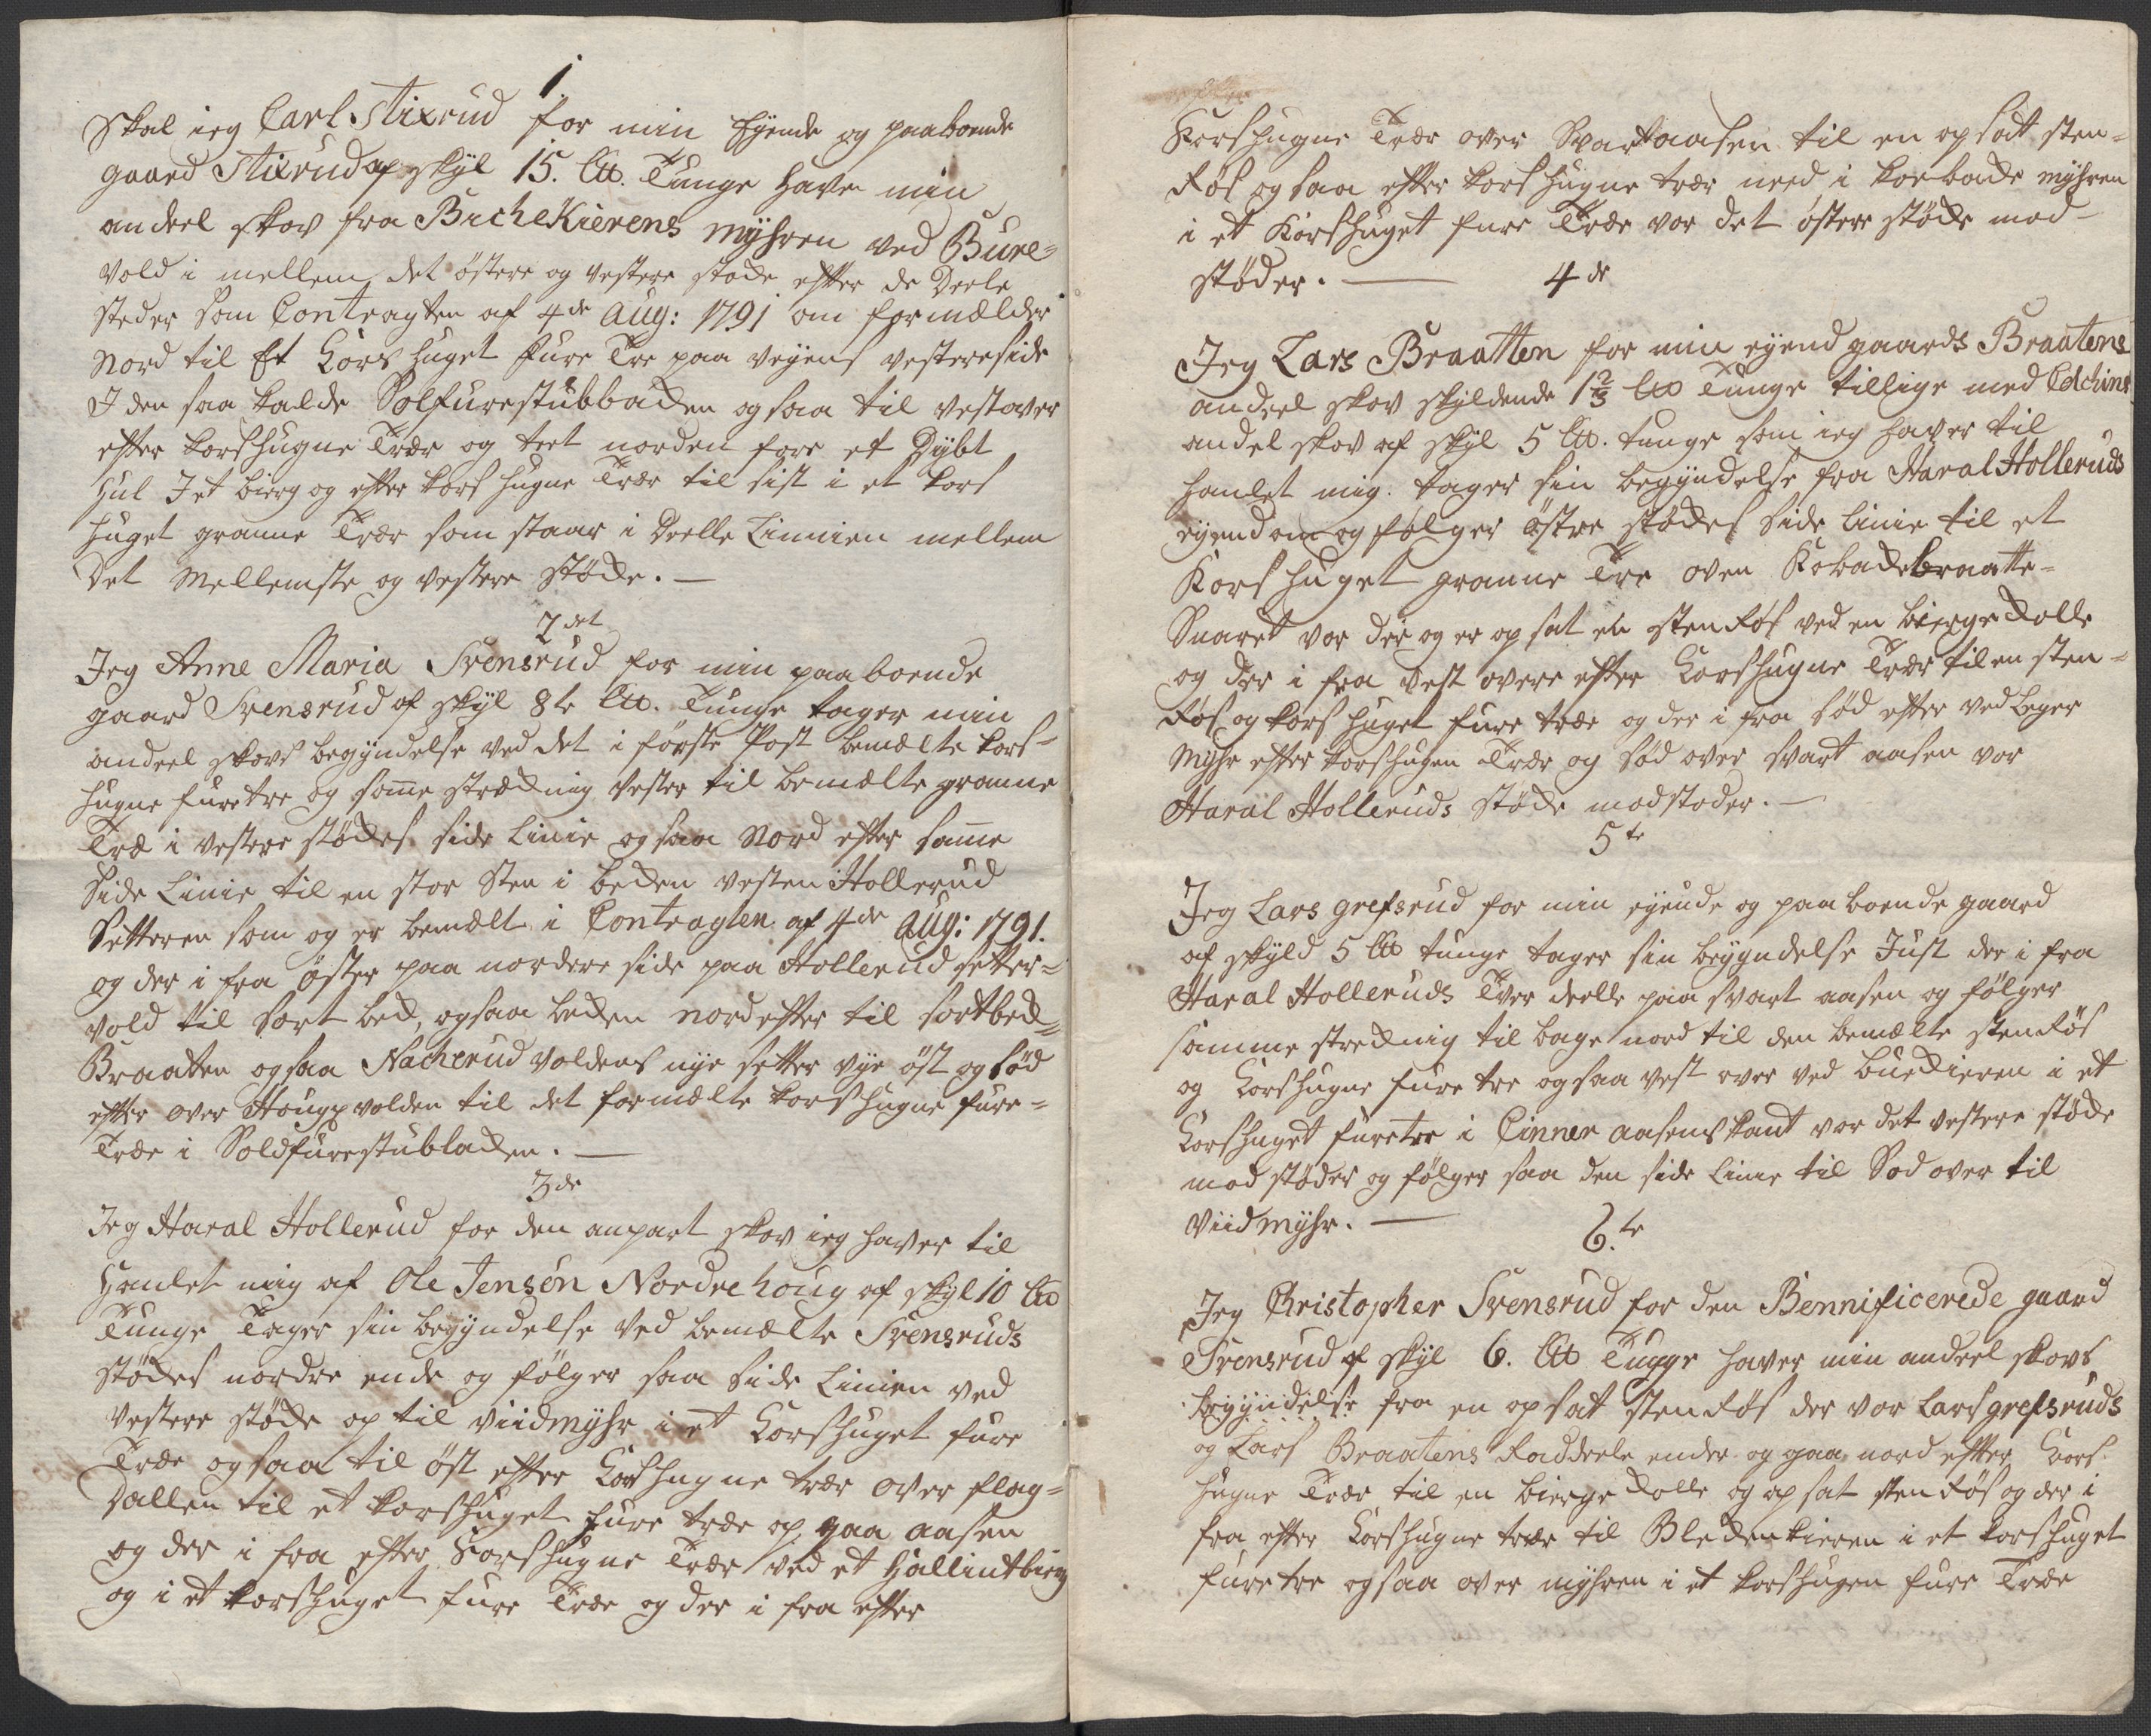 1.
Skal ieg Carl Stixrud for min Eyende og paaboende
gaard Stixrud af skyl 15. L℔. Tunge have min
andeel skov fra BircheKierens myhren ved Bure-
vold i mellem det östere og vestere støde efter de Deele
steder som Contragten af 4de Aug: 1791 om formælder
Nord til Et Korshuget fure Tre paa veyens vestereside
I den saa kalde Solfurestubbaken og saa til vestover
efter korshugne Trær og tert norden fore et Dybt
hul I et bierg og efter kors hugne Trær til sist i et kors
huget granne Trær som staar i Deelle Linnien mellem
Det Mellemste og vestere støde. —
2det
Jeg Anne Maria Svensrud for min paa boende
gaard Svensrud af skyl 8te L℔. Tunge tager min
andeel skovs begyndelse ved det i förste Post bemælte kors-
hugne furetre og samme strækning vester til bemælte granne
Træ i vestere stødes side Linie og saa Nord efter samme
Side Linie til en stor Sten i bekken vesten Hollerud
Setteren som og er bemælt i Contragten af 4de Aug: 1791.
og der i fra öster paa nordere side paa Hollerud setter-
vold til sort bek, og saa bekken nordefter til sortbek-
Braaten og saa Nacherud voldens nye setter vye öst og sød
efter over Hougsvolden til det formælte korshugne fure-
Træe i Soldfurestubbaken. —
3de
Jeg Haral Hollerud for den anpart skov ieg haver til
Handlet mig af Ole Jensön Nordrehoug af skyl 10 L℔
Tunge Tager sin begyndelse ved bemælte Svensruds
stødes nordre ende og følger saa side Linien ved
vestere støde op til Viidmyhr i et Korshuget fure
Træe og saa til öst efter Korshugne trær over flag-
Dallen til et korshuget fure træe op paa aasen
og der i fra efter Korshugne Trær ved et Hallindtbierg
og i et korshuget fure Træe og der i fra efter
Korshugne Trær over Svartaasen til en opsatt sten-
Røs og saa efter korshugne trær need i korbacke myhren
i et Korshuget fure Træe vor det östere støde mod-
støder. —
4de
Jeg Lars Braatten for min eyend gaards Braatens
andeel skov skyldende 1⅔ L℔ Tunge tillige med Elchins
andel skov af skyl 5 L℔. tunge som ieg haver til
handlet mig. tager sin begyndelse fra Haral Holleruds
eyendom og følger östre stødes side Linie til et
Korshuget granne Tre oven Kobackebraatte-
Svaret vor der og er opsat en stenRøs ved en bierge Kolle
og der i fra vest overe efter Korshugne Trær til en sten-
Røs og korshuget fure træe og der i fra sød efter ved Leger
Myhr efter korshugen Træe og sød over svart aasen vor
Haral Holleruds støde modstøder. —
5te
Jeg Lars grefsrud for min eyende og paa boende gaard
af skyld 5 L℔ tunge tager sin begyndelse Just der i fra
Haral Holleruds Tver deelle paa svart aasen og følger
samme strekning til bage nord til den bemælte stenRøs
og Korshugne fure tre og saa vest over ved buekieren i et
Korshuget furetre i Linner aasenskant vor det vestere støde
modstøder og følger saa den side Linie til Sød over til
Viidmyhr. —
6.te
Jeg Christopher Svensrud for den Bennificerede gaard
Svensrud af skyl 6. L℔ Tunge haver min andeel skovs
begyndelse fra en opsatt stenRøs der vor Lars grefsruds
og Lars Braatens Raddeele ender og gaa nord efter Kors
hugne Trær til en bierge Kolle og opsat stenRøs og der i
fra efter Korshugne trær til Blekenkieren i et korshuget
furetre og saa over myhren i et korshugen fure Træe